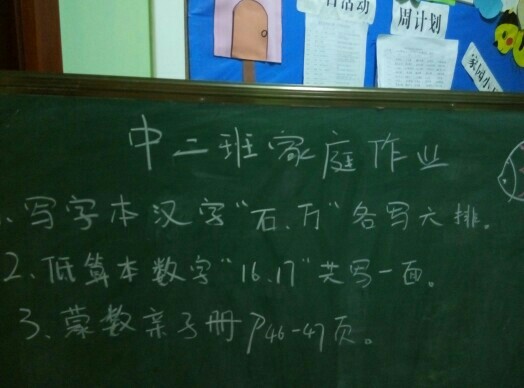 日活动
周计划
家园小
中二班家庭作业
1、写字本汉字“石、万”各写六排。
2、低算本数字“16、17”共写一面。
3、蒙数亲子册P46-47页。